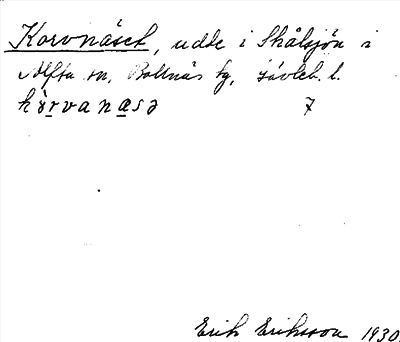 Korvnäset, udde i Skålsjön i
Alfta sn, Bollnäs tg, Gävleb. l.
kòrvanasə 7
Erik Eriksson 1930.